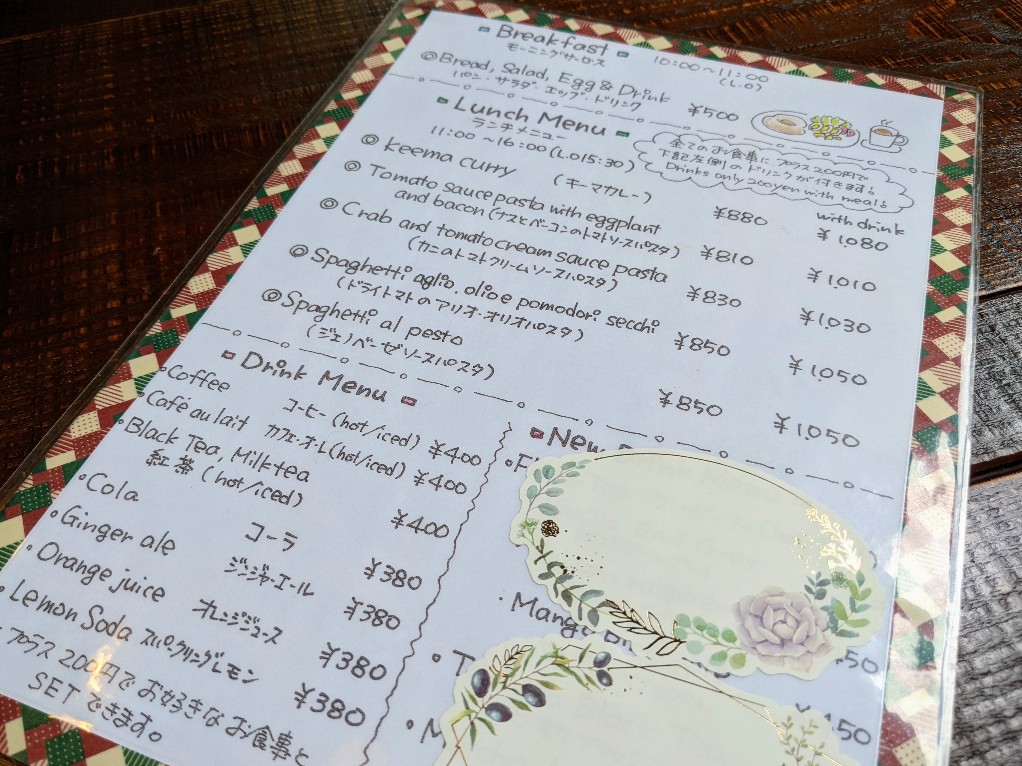 Breakfast 10:00~11:00
モーニングサービス (L.O)
◎Bread, Salad, Egg & Drink ¥500
パン・サラダ・エッグ・ドリンク
Lunch Menu
ランチメニュー
11:00~16:00(L.O15:30)
全てのお食事にプラス200円で
下記左側のドリンクが付きます。
Drinks only 200yen with meal.
with drink
◎ keema curry (キーマカレー) ¥880 ¥1,080
◎ Tomato sauce pasta with eggplant
and bacon (ナスとベーコンのトマトソースパスタ) ¥810 ¥1,010
◎ Crab and tomato cream sauce pasta ¥830 ¥1,030
(カニのトマトクリームソースパスタ)
◎ Spaghetti aglio. olio e pomodori secchi ¥850 ¥1,050
(ドライトマトのアリオ・オリオパスタ)
◎Spaghetti al pesto ¥850 ¥1,050
(ジェノベーゼソースパスタ)
Drink Menu
•Coffee コーヒー (hot/iced) ¥400
•Café au lait カフェ・オ・レ(hot/iced) ¥400
•Black Tea, Milk tea ¥400
紅茶 (hot/iced)
•Cola コーラ ¥380
•Ginger ale ジンジャーエール ¥380
•Orange juice オレンジジュース ¥380
•Lemon Soda スパークリングレモン ¥380
プラス200円でお好きなお食事と
SETできます。
New
•Mango